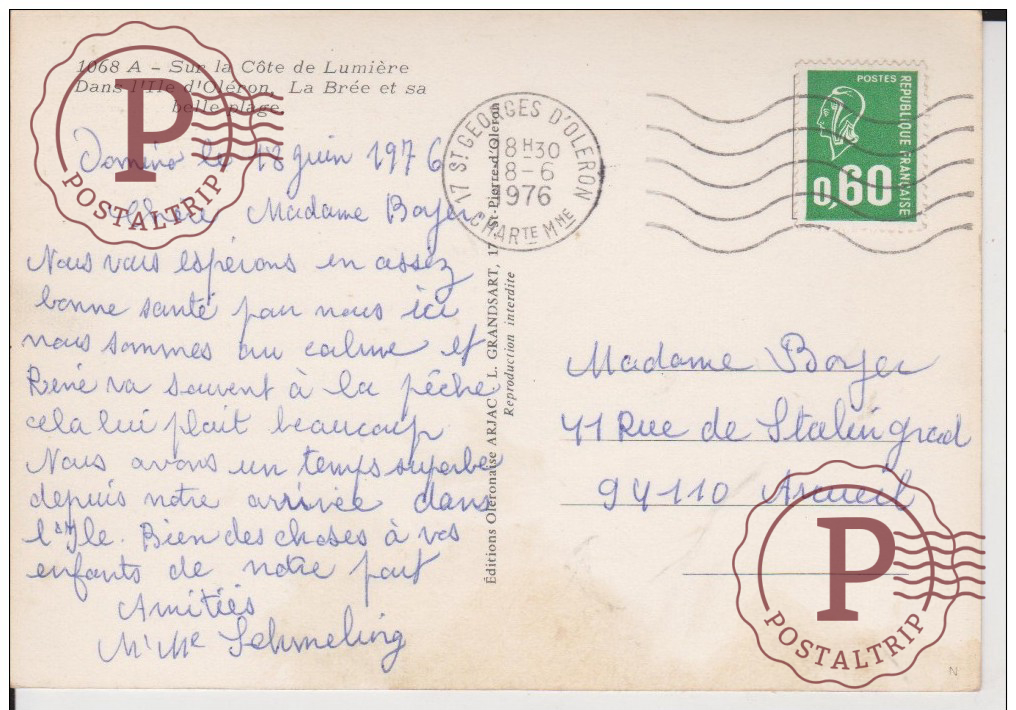 1068 A - Sur la Côte de Lumière
Dans l'Ile d'Oléron, La Brée et sa
belle plage
Domino le 18 juin 1976
Chère Madame Boyer
Nous vous espérons en assez
bonne santé pour nous ici
nous sommes au calme et
René va souvent à la pêche
cela lui plait beaucoup
Nous avons un temps superbe
depuis notre arrivée dans
l'Ile. Bien des choses à vos
enfants de notre part
Amitiés
M Me Schmeling
Éditions Oléronaise ARJAC - L. GRANDSART, 17 - St-Pierre-d'Oléron
Reproduction interdite
17 ST GEORGES D'OLERON
8H30
8-6
1976
CHARTE MME
POSTES
REPUBLIQUE FRANÇAISE
0,60
Madame Boyer
41 Rue de Stalingrad
94110 Arcueil
N
P
POSTALTRIP
P
POSTALTRIP